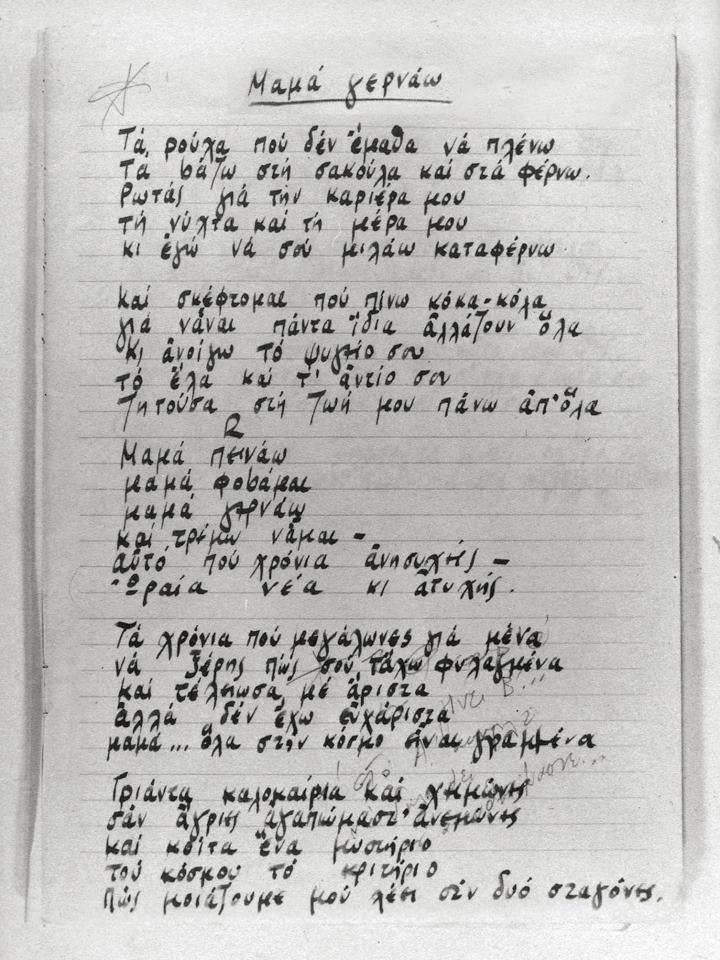 Μαμά γερνάω
Τά ρούχα πού δέν ἔμαθα νά πλένω
τά βάζω στή σακούλα καί στά φέρνω.
Ρωτάς γιά τήν καριέρα μου
τή νύχτα καί τή μέρα μου
κι ἐγώ νά σοῦ μιλάω καταφέρνω
καί σκέφτομαι πού πίνω κόκα-κόλα
γιά νἆναι πάντα ἴδια ἀλλάζουν ὅλα
κι ἀνοίγω τό ψυγεῖο σου
τό ἔλα καί τ' ἀντίο σου
ζητοῦσα στή ζωή μου πάνω ἀπ' ὅλα
R
Μαμά πεινάω
μαμά φοβάμαι
μαμά γερνάω
καί τρέμω νἆμαι -
αὐτό πού χρόνια ἀνησυχεῖς -
Ὡραία νέα κι ἀτυχής.
Τά χρόνια πού μεγάλωνες γιά μένα
νά ξέρης πώς σοῦ τἄχω φυλαγμένα
καί τέλειωσα μέ ἄριστα
ἀλλά δέν ἔχω εὐχάριστα
μαμά... ὅλα στόν κόσμο εἶναι γραμμένα
Τριάντα καλοκαίρια καί χειμῶνες
σάν ἄγριες ἀγαπώμαστ' ἀνεμῶνες
καί κοίτα ἕνα μυστήριο
τοῦ κόσμου τό κριτήριο
πώς μοιάζουμε μοῦ λέει σάν δυό σταγόνες.